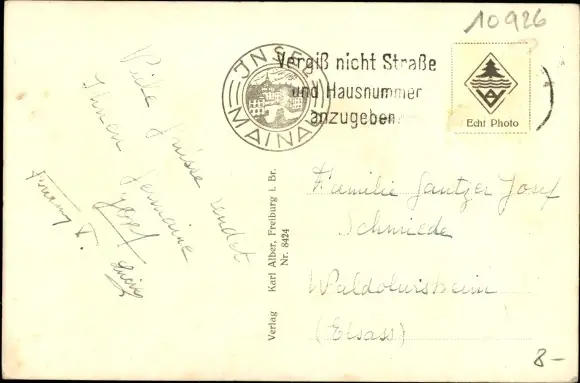 10926
INSEL
MAINAU
Vergiß nicht Straße
und Hausnummer
anzugeben.
Echt Photo
Viele Grüsse sendet
Ihnen Germaine
Josef
Verlag Karl Alber, Freiburg i. Br.
Nr. 8424
Familie Gantzer Josef
Schmiede
(Elsass)
8-